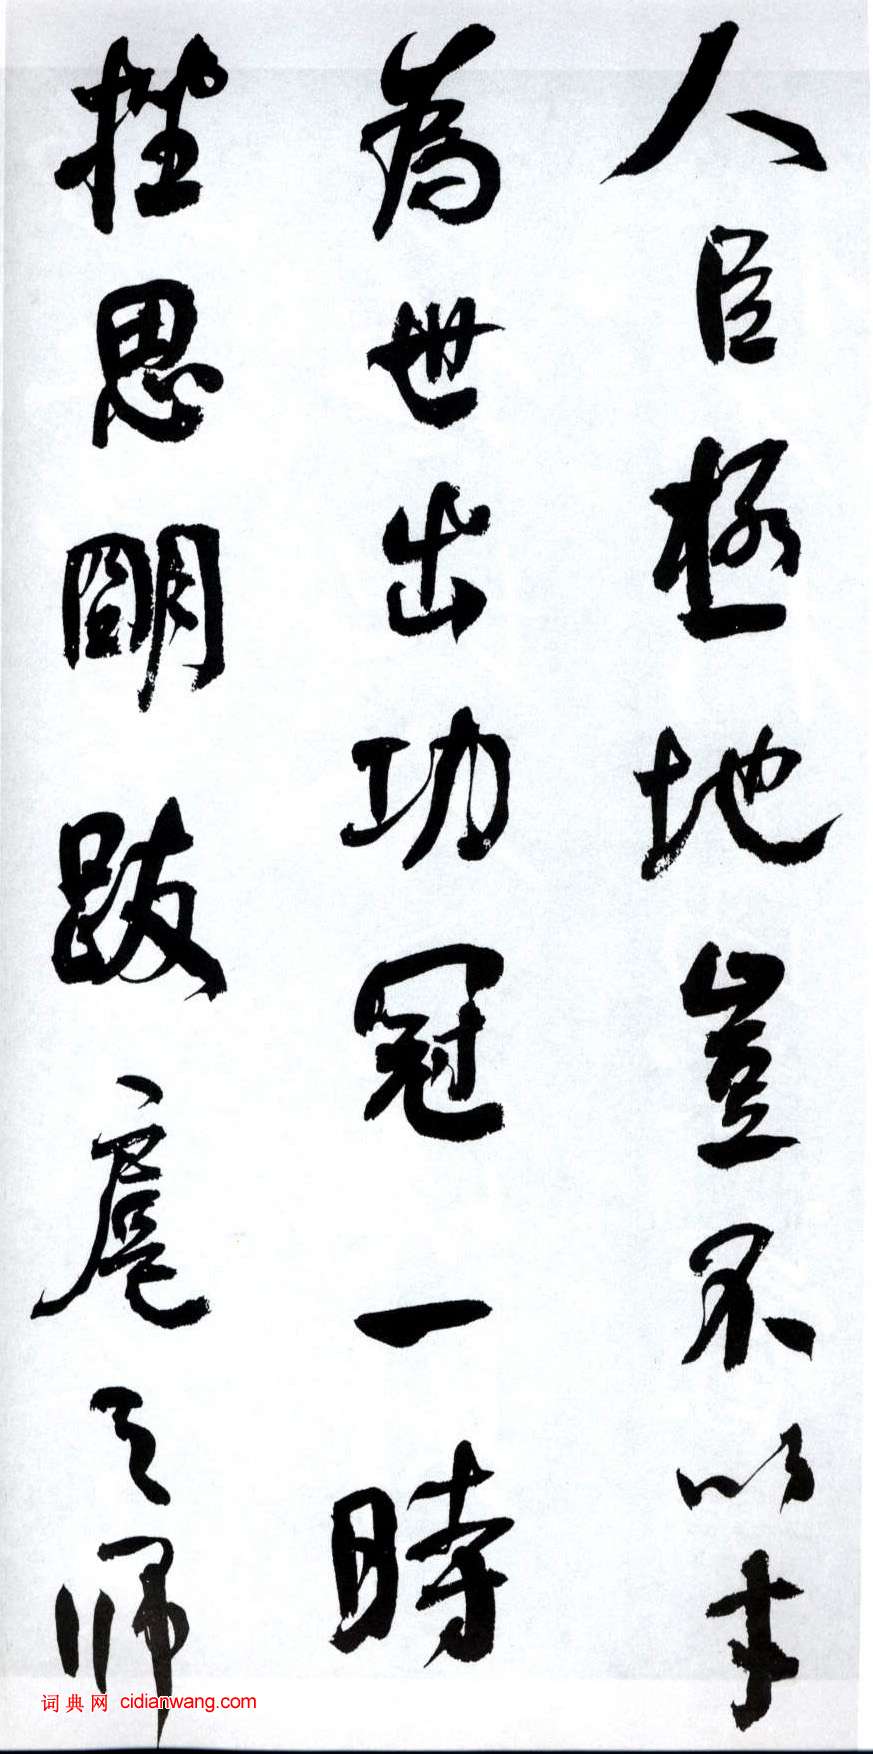 人臣極地豈不以才
為世出功冠一時
挫思明跋扈之師
词典网 cidianwang.com